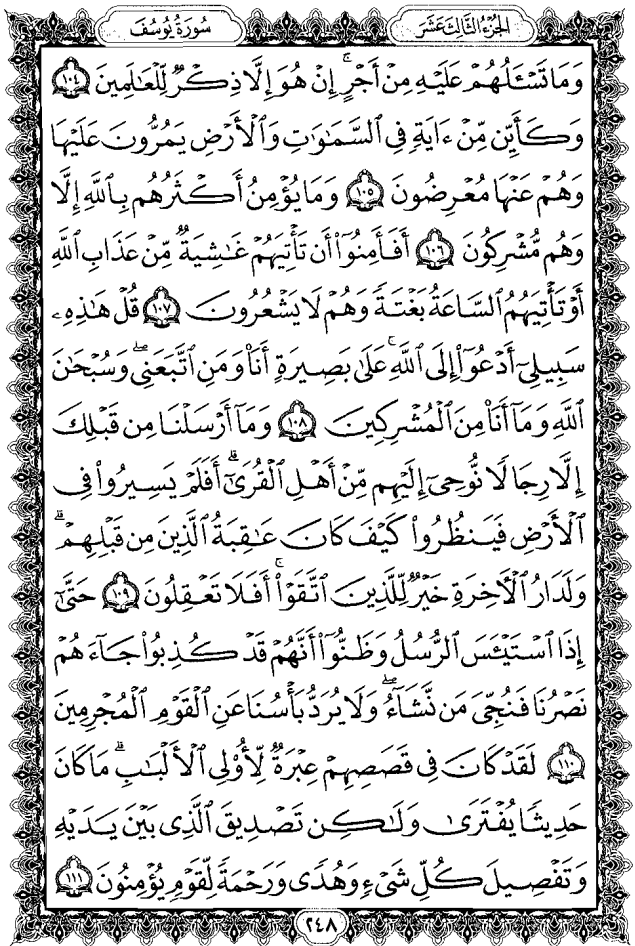 الجزء الثالث عشر
سورة يوسف
وَمَا تَسْـَٔلُهُمْ عَلَيْهِ مِنْ أَجْرٍۚ إِنْ هُوَ إِلَّا ذِكْرٌ لِّلْعَٰلَمِينَ ١٠٤
وَكَأَيِّن مِّنْ ءَايَةٍ فِى ٱلسَّمَٰوَٰتِ وَٱلْأَرْضِ يَمُرُّونَ عَلَيْهَا
وَهُمْ عَنْهَا مُعْرِضُونَ ١٠٥ وَمَا يُؤْمِنُ أَكْثَرُهُم بِٱللَّهِ إِلَّا
وَهُم مُّشْرِكُونَ ١٠٦ أَفَأَمِنُوٓا۟ أَن تَأْتِيَهُمْ غَٰشِيَةٌ مِّنْ عَذَابِ ٱللَّهِ
أَوْ تَأْتِيَهُمُ ٱلسَّاعَةُ بَغْتَةً وَهُمْ لَا يَشْعُرُونَ ١٠٧ قُلْ هَٰذِهِۦ
سَبِيلِىٓ أَدْعُوٓا۟ إِلَى ٱللَّهِۚ عَلَىٰ بَصِيرَةٍ أَنَا۠ وَمَنِ ٱتَّبَعَنِىۖ وَسُبْحَٰنَ
ٱللَّهِ وَمَآ أَنَا۠ مِنَ ٱلْمُشْرِكِينَ ١٠٨ وَمَآ أَرْسَلْنَا مِن قَبْلِكَ
إِلَّا رِجَالًا نُّوحِىٓ إِلَيْهِم مِّنْ أَهْلِ ٱلْقُرَىٰٓۗ أَفَلَمْ يَسِيرُوا۟ فِى
ٱلْأَرْضِ فَيَنظُرُوا۟ كَيْفَ كَانَ عَٰقِبَةُ ٱلَّذِينَ مِن قَبْلِهِمْۗ
وَلَدَارُ ٱلْءَاخِرَةِ خَيْرٌ لِّلَّذِينَ ٱتَّقَوْا۟ۚ أَفَلَا تَعْقِلُونَ ١٠٩ حَتَّىٰٓ
إِذَا ٱسْتَيْـَٔسَ ٱلرُّسُلُ وَظَنُّوٓا۟ أَنَّهُمْ قَدْ كُذِبُوا۟ جَآءَهُمْ
نَصْرُنَا فَنُجِّىَ مَن نَّشَآءُۖ وَلَا يُرَدُّ بَأْسُنَا عَنِ ٱلْقَوْمِ ٱلْمُجْرِمِينَ
١١٠ لَقَدْ كَانَ فِى قَصَصِهِمْ عِبْرَةٌ لِّأُو۟لِى ٱلْأَلْبَٰبِۗ مَا كَانَ
حَدِيثًا يُفْتَرَىٰ وَلَٰكِن تَصْدِيقَ ٱلَّذِى بَيْنَ يَدَيْهِ
وَتَفْصِيلَ كُلِّ شَىْءٍ وَهُدًى وَرَحْمَةً لِّقَوْمٍ يُؤْمِنُونَ ١١١
٢٤٨